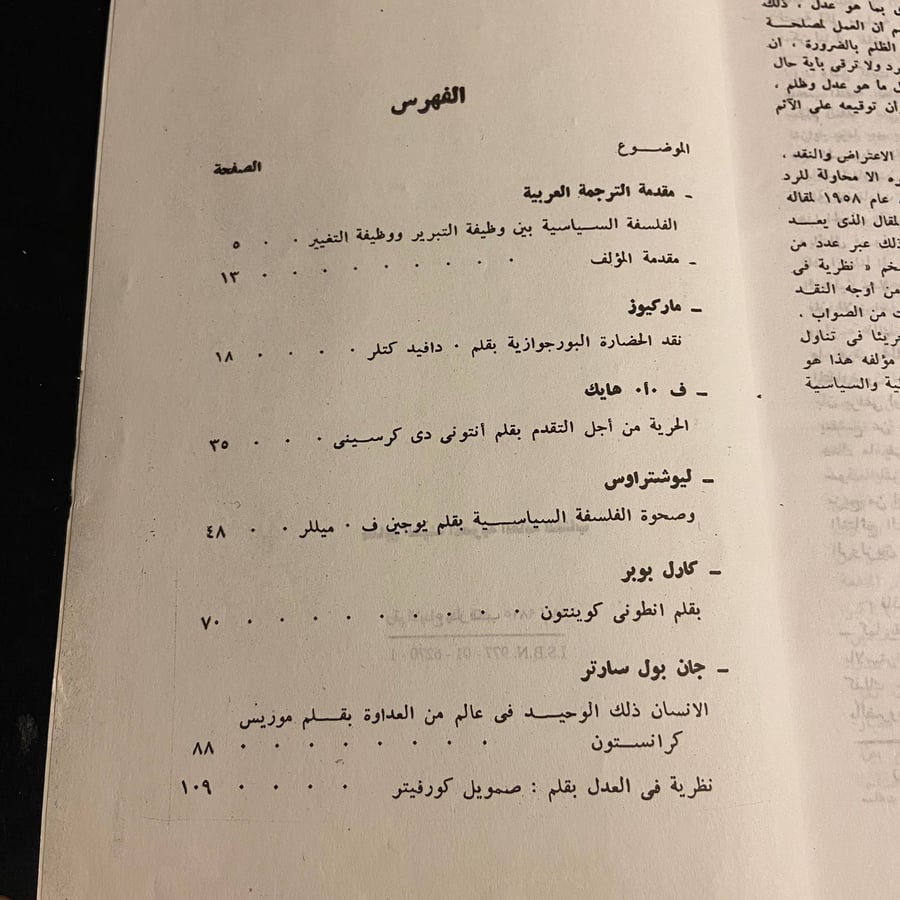 الفهرس
الموضـــوع
الصفحة
ـ مقدمة الترجمة العربية
الفلسفة الســـياسية بين وظيفة التبرير ووظيفة التغيير . . ٥
ـ مقدمة المؤلف . . . . . . . . . ١٣
ـ ماركيوز
نقد الحضارة البورجوازية بقلم . دافيد كتلر . . . . ١٨
ـ ف .أ. هايك
الحرية من أجل التقدم بقلم أنتونى دى كرسـينى . . . ٣٥
ـ ليوشتراوس
وصحوة الفلسفة السياســـية بقلم يوجين ف . ميللر . . . ٤٨
ـ كارل بوبر
بقلم انطونى كوينتون . . . . . . . . ٧٠
ـ جان بول سارتر
الانسان ذلك الوحيـــد فى عالم من العداوة بقـــلم موريس
كرانســـتون . . . . . . . . ٨٨
نظرية فى العدل بقلم : صمويل كورفيتر . . . . ١٠٩
بما هو عدل ، ذلك
ان العمل لمصلحـــة
الظلم بالضرورة ، ان
ولا ترقى باية حال
ما هو عدل وظلم ،
توقيعه على الآثم
الاعتراض والنقد .
الا محاولة للرد
عام ١٩٥٨ لمقاله
لمقال الذى يعـــد
ذلك عبر عدد من
« نظرية فى
من أوجه النقـــد
من الصواب .
فى تناول
مؤلفه هذا هو
والسياسية